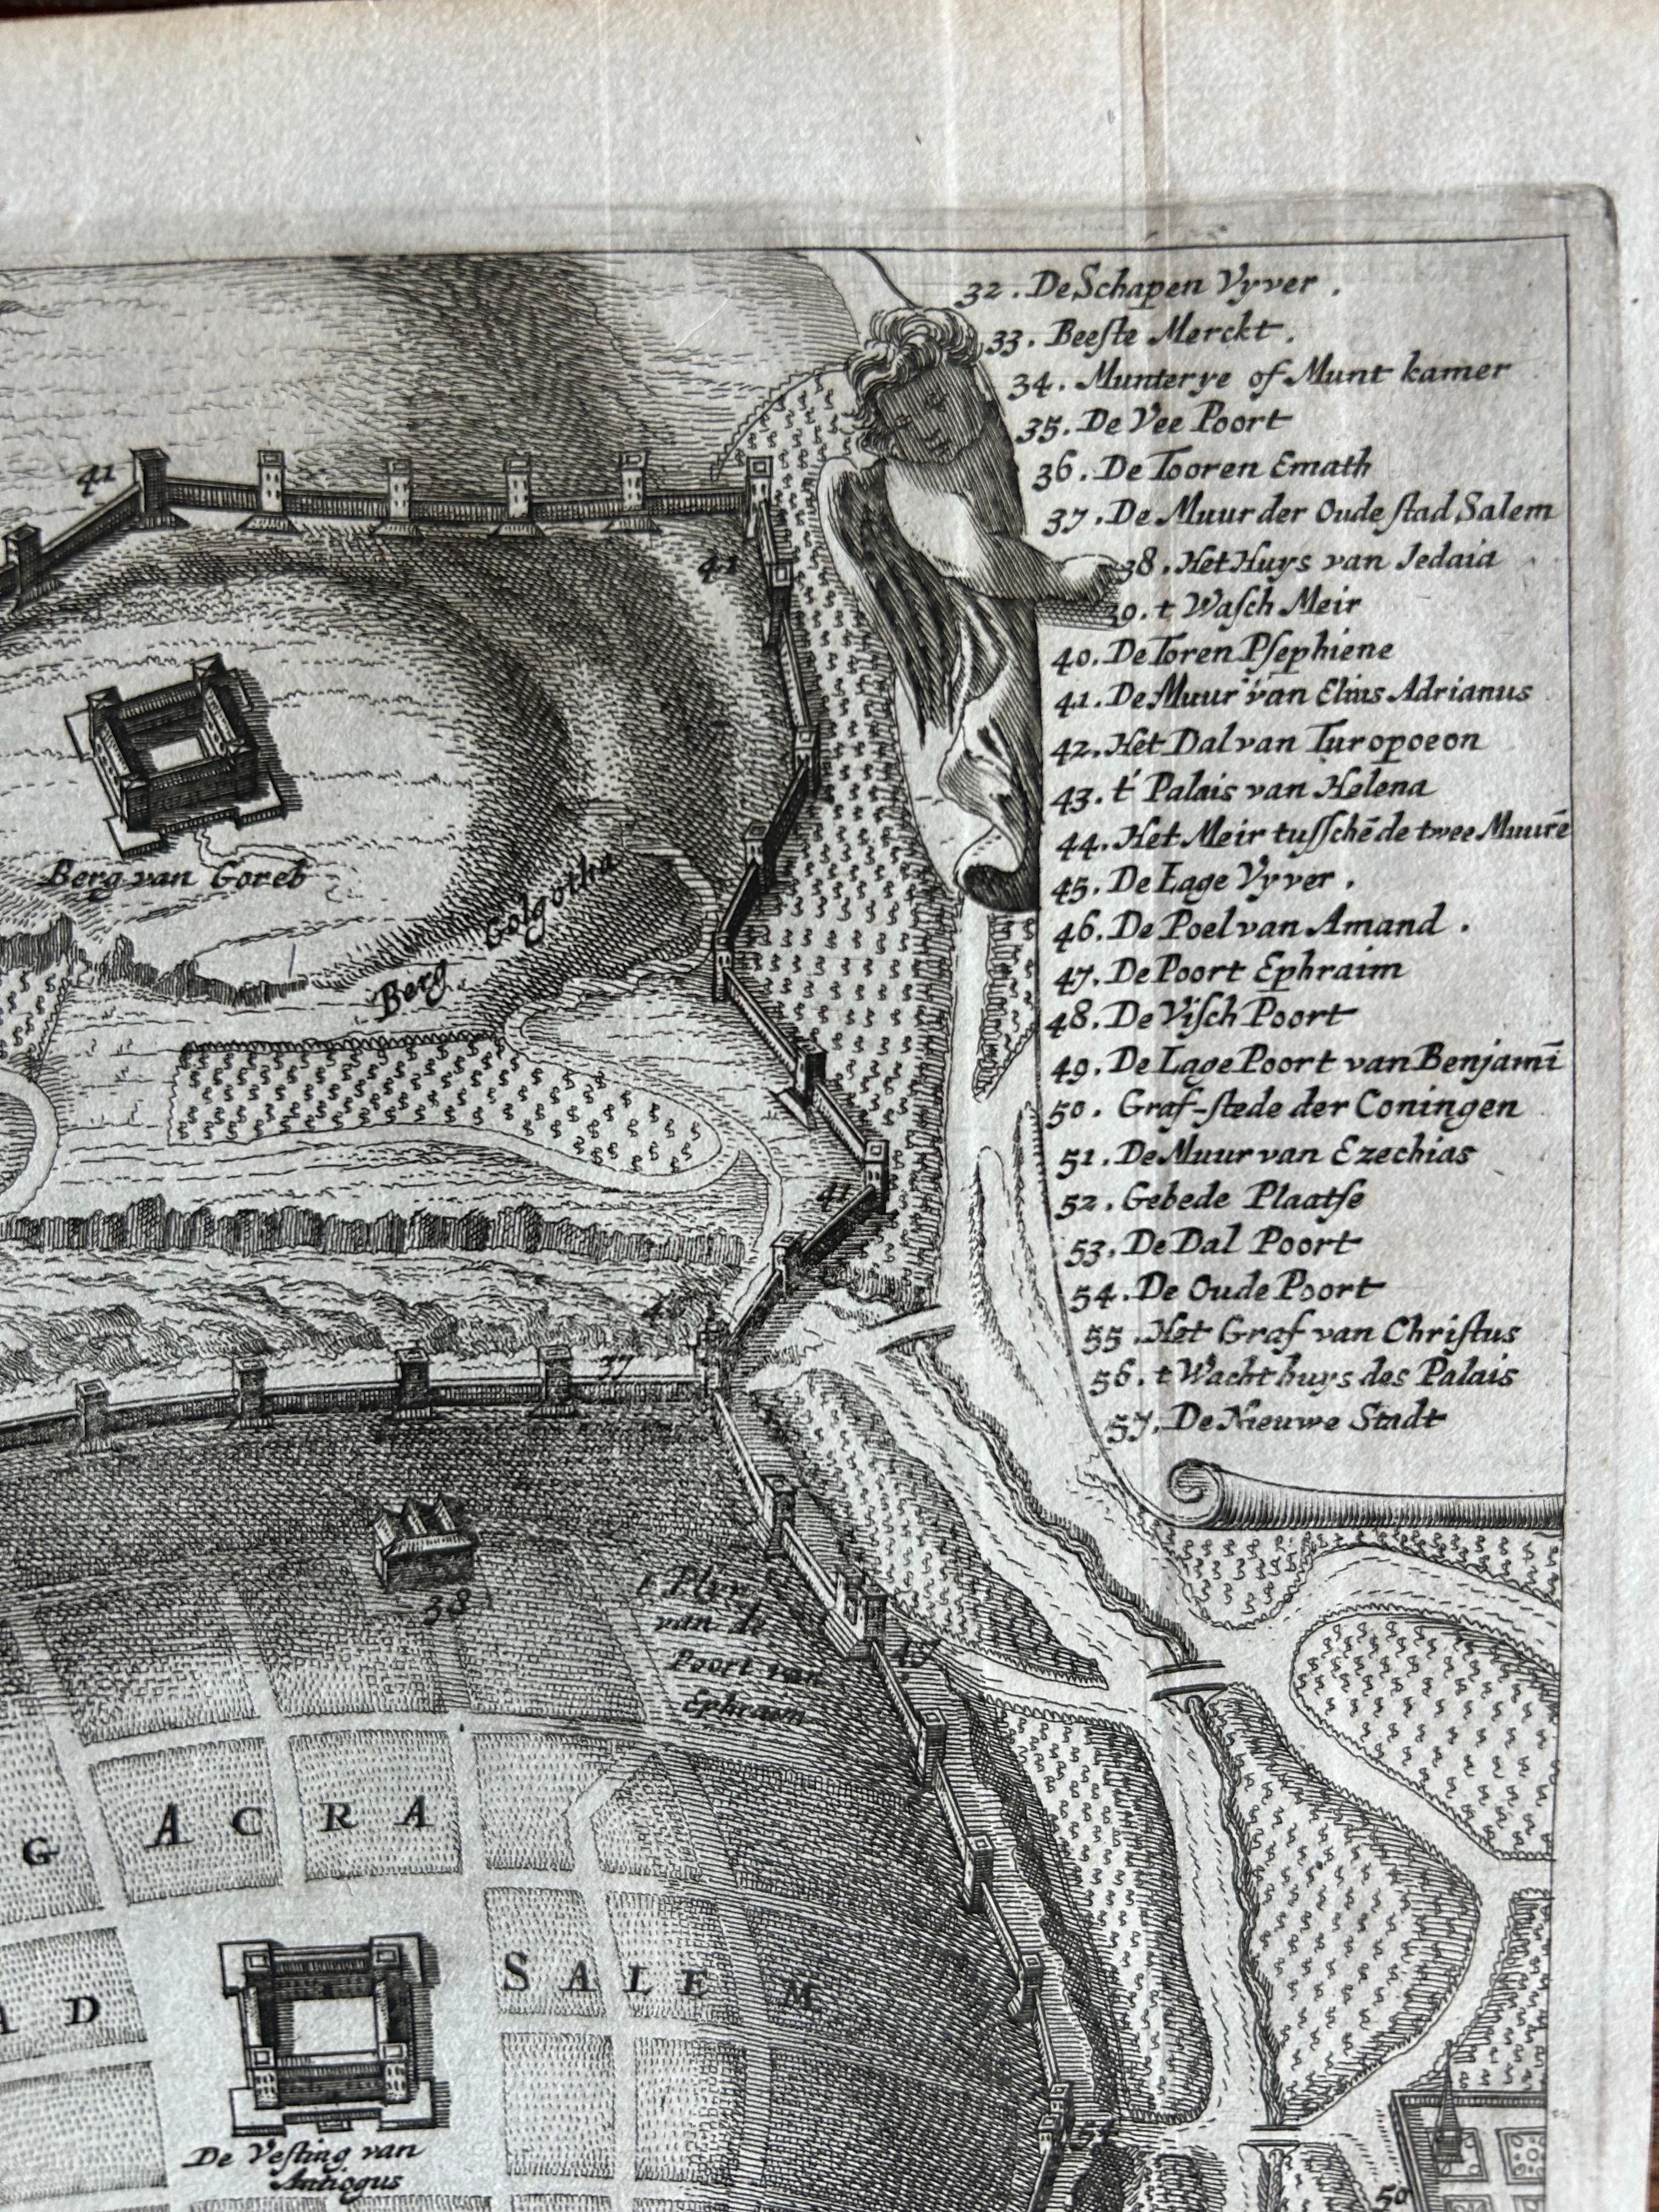 32. De Schapen Vyver.
33. Beeſte Merckt.
34. Munterye of Munt kamer
35. De Vee Poort
36. De Tooren Emath
37. De Muur der Oude ſtad Salem
38. Het Huys van Jedaia
39. t Waſch Meir
40. De Toren Pſephiene
41. De Muur van Elius Adrianus
42. Het Dal van Turopoeon
43. t' Palais van Helena
44. Het Meir tuſſchē de twee Muurē
45. De Lage Vyver.
46. De Poel van Amand.
47. De Poort Ephraim
48. De Viſch Poort
49. De Lage Poort van Benjamī
50. Graf-ſtede der Coningen
51. De Muur van Ezechias
52. Gebede Plaatſe
53. De Dal Poort
54. De Oude Poort
55. Het Graf van Chriſtus
56. t Wacht huys des Palais
57. De Nieuwe Stadt
41
41
Berg van Goreb
Berg Golgotha
41
37
38
van de
Poort van
Ephraim
47
G ACRA
A D SALEM
De Veſting van
Antiogus
50